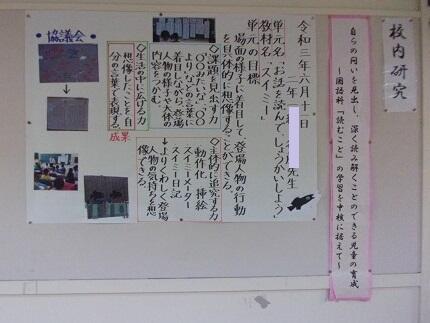 校内研究
自らの問いを見出し、深く読み解くことのできる児童の育成
～国語科「読むこと」の学習を中核に据えて～
令和三年六月十一日
年 組 先生
単元名「お話を読んでしょうかいしよう」
教材名「スイミー」
単元の目標
場面の様子に着目して、登場人物の行動
を具体的に想像することができる。
◇課題を見出す力
「〇〇みたいな」「〇〇
より」などの言葉に
着目しながら、登場
人物の様子や大体の
内容をつかむ。
◇主体的に追究する力
動作化 挿絵
スイミーメーター
スイミー日記
→よりくわしく登場
人物の気持ちを想
像できる。
◇生活の中に広げる力
想像したことを自
分の言葉で表現する
成果
協議会